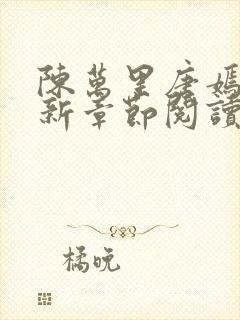 陳萬里唐嫣
新章節閱讀
橘晚